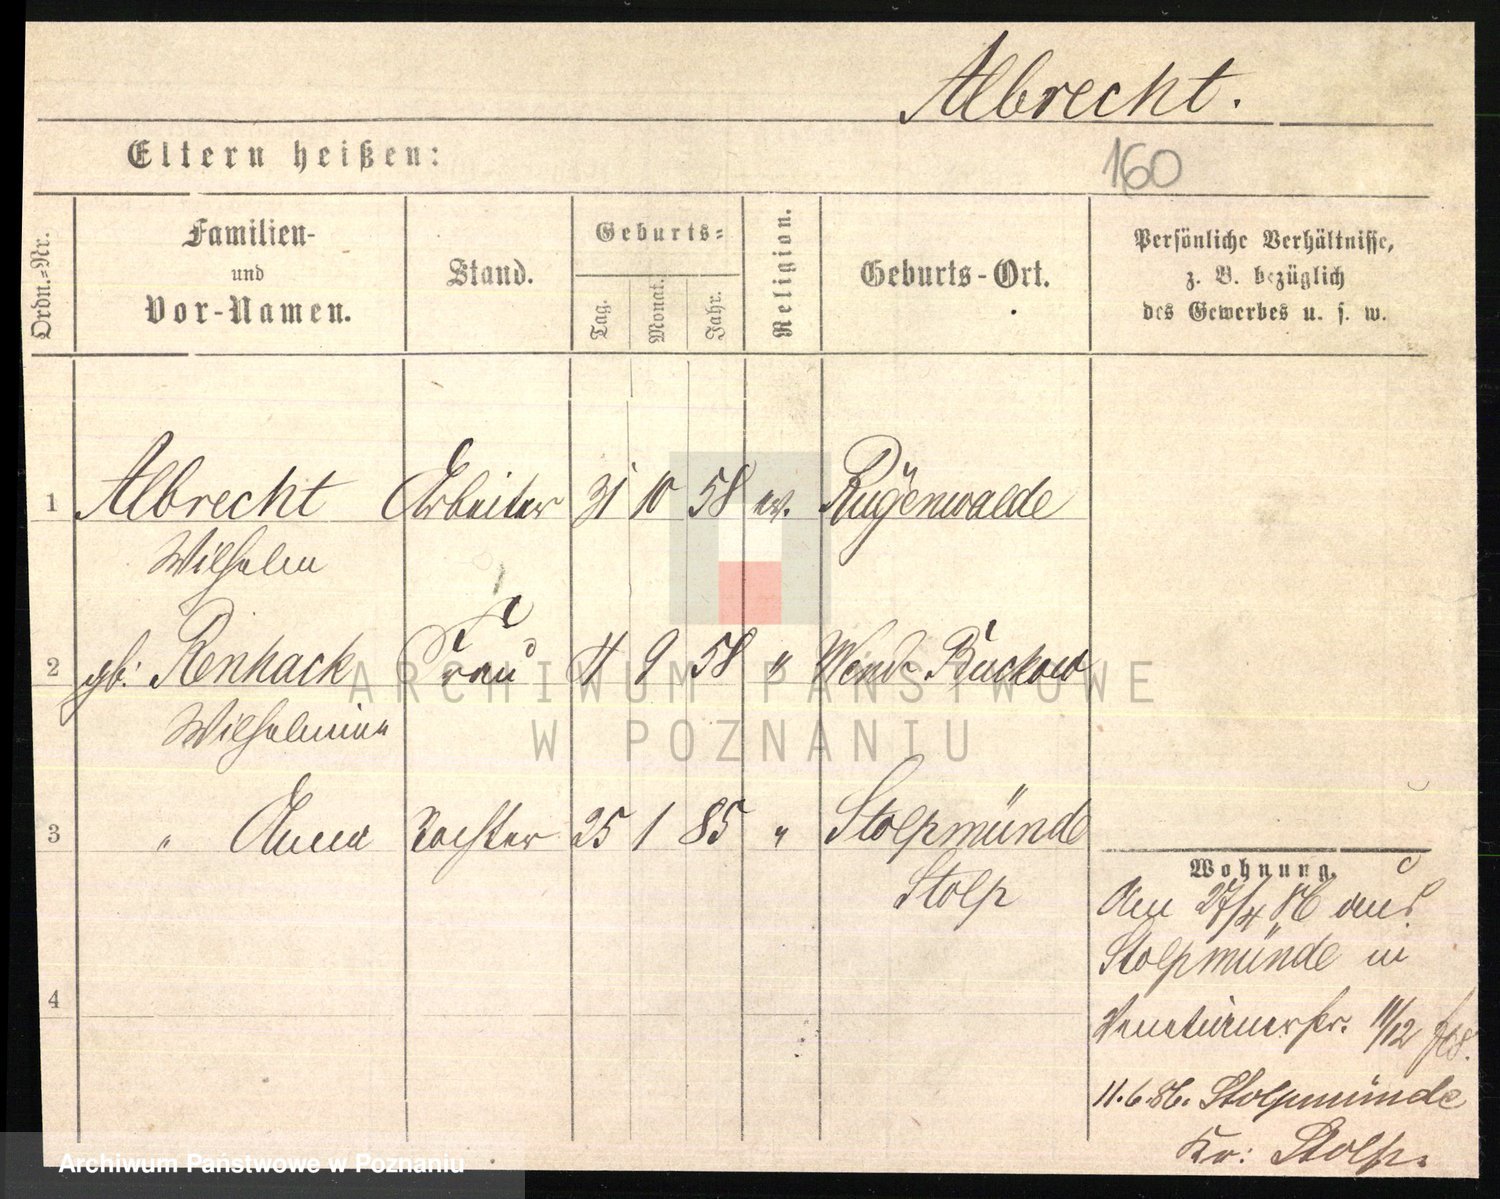 Albrecht.
Eltern heißen:
160
Ordn.=Nr.
Familien-
und
Vor-Namen.
Stand.
Geburts=
Tag.
Monat.
Jahr.
Religion.
Geburts-Ort.
Persönliche Verhältnisse,
z. B. bezüglich
des Gewerbes u. s. w.
1 Albrecht Arbeiter 31 10 58 ev. Rügenwalde
Wilhelm
2 gb: Renhack Frau 4 9 58 " Wend. Buckow
Wilhelmine
3 " Anna Tochter 25 1 85 " Stolpmünde
Stolp
4
Wohnung.
Am 27/4 86 aus
Stolpmünde in
11/12
11.6.86. Stolpmünde
Kr: Stolp.
ARCHIWUM PAŃSTWOWE
W POZNANIU
Archiwum Państwowe w Poznaniu